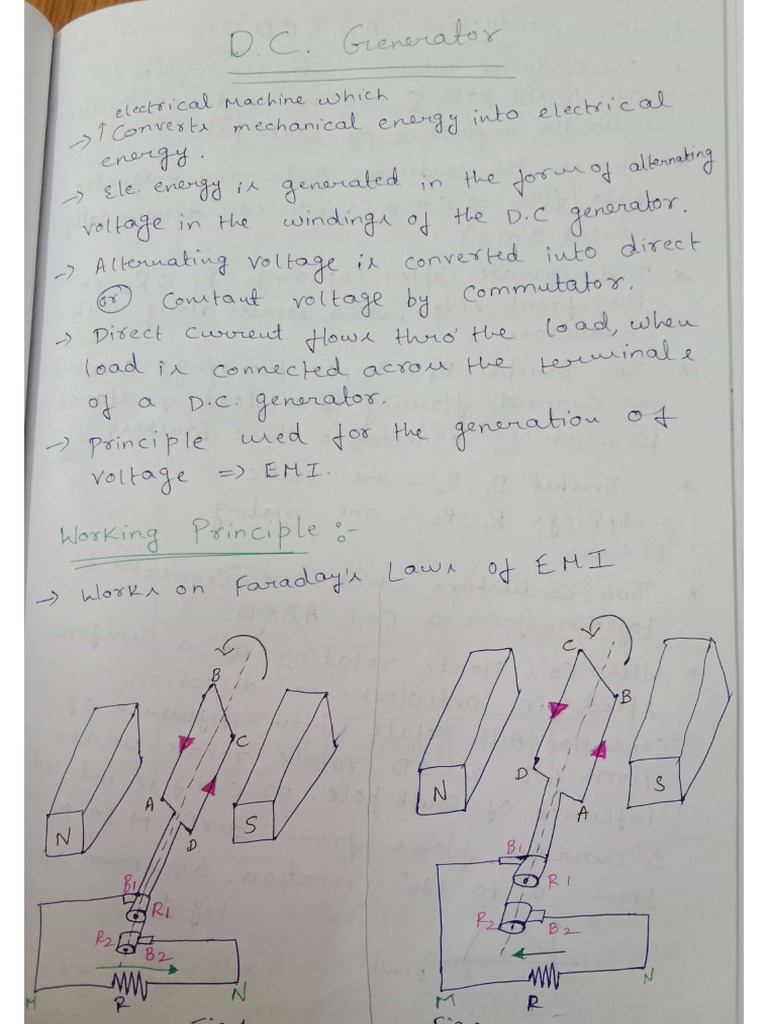 D.C. Generator
electrical Machine which
→ ↑ Converts mechanical energy into electrical
energy.
→ Ele. energy is generated in the form of alternating
voltage in the windings of the D.C generator.
→ Alternating voltage is converted into direct
(or) Constant voltage by commutator.
→ Direct current flows thro' the load, when
load is connected across the terminals
of a D.C. generator.
→ Principle used for the generation of
voltage => EMI.
Working Principle :-
→ Works on Faraday's Laws of EMI
B
C
A
D
N
S
B1
R1
R2
B2
M
R
N
C
B
D
A
N
S
B1
R1
R2
B2
M
R
N